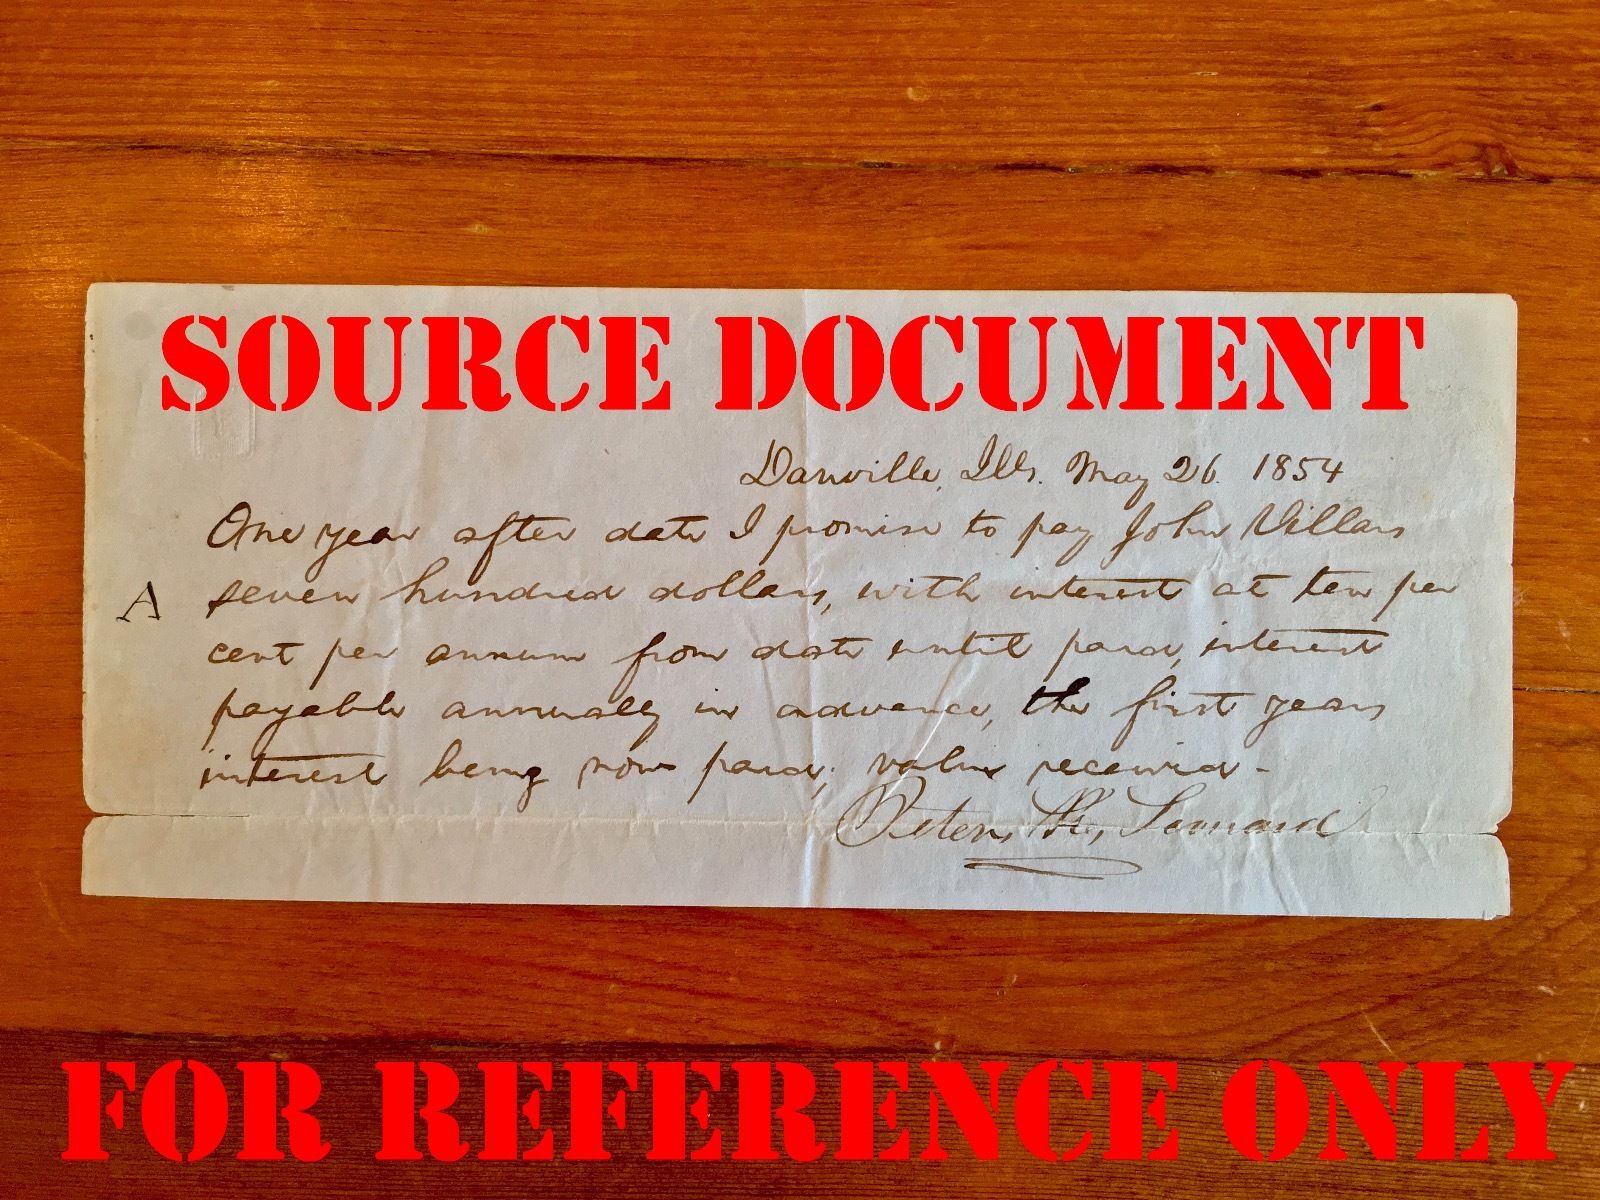 SOURCE DOCUMENT
Danville, Ills. May 26. 1854
One year after date I promise to pay John Villars
A seven hundred dollars, with interest at ten per
cent per annum from date until paid, interest
payable annually in advance, the first years
interest being now paid; value received -
Peter
FOR REFERENCE ONLY